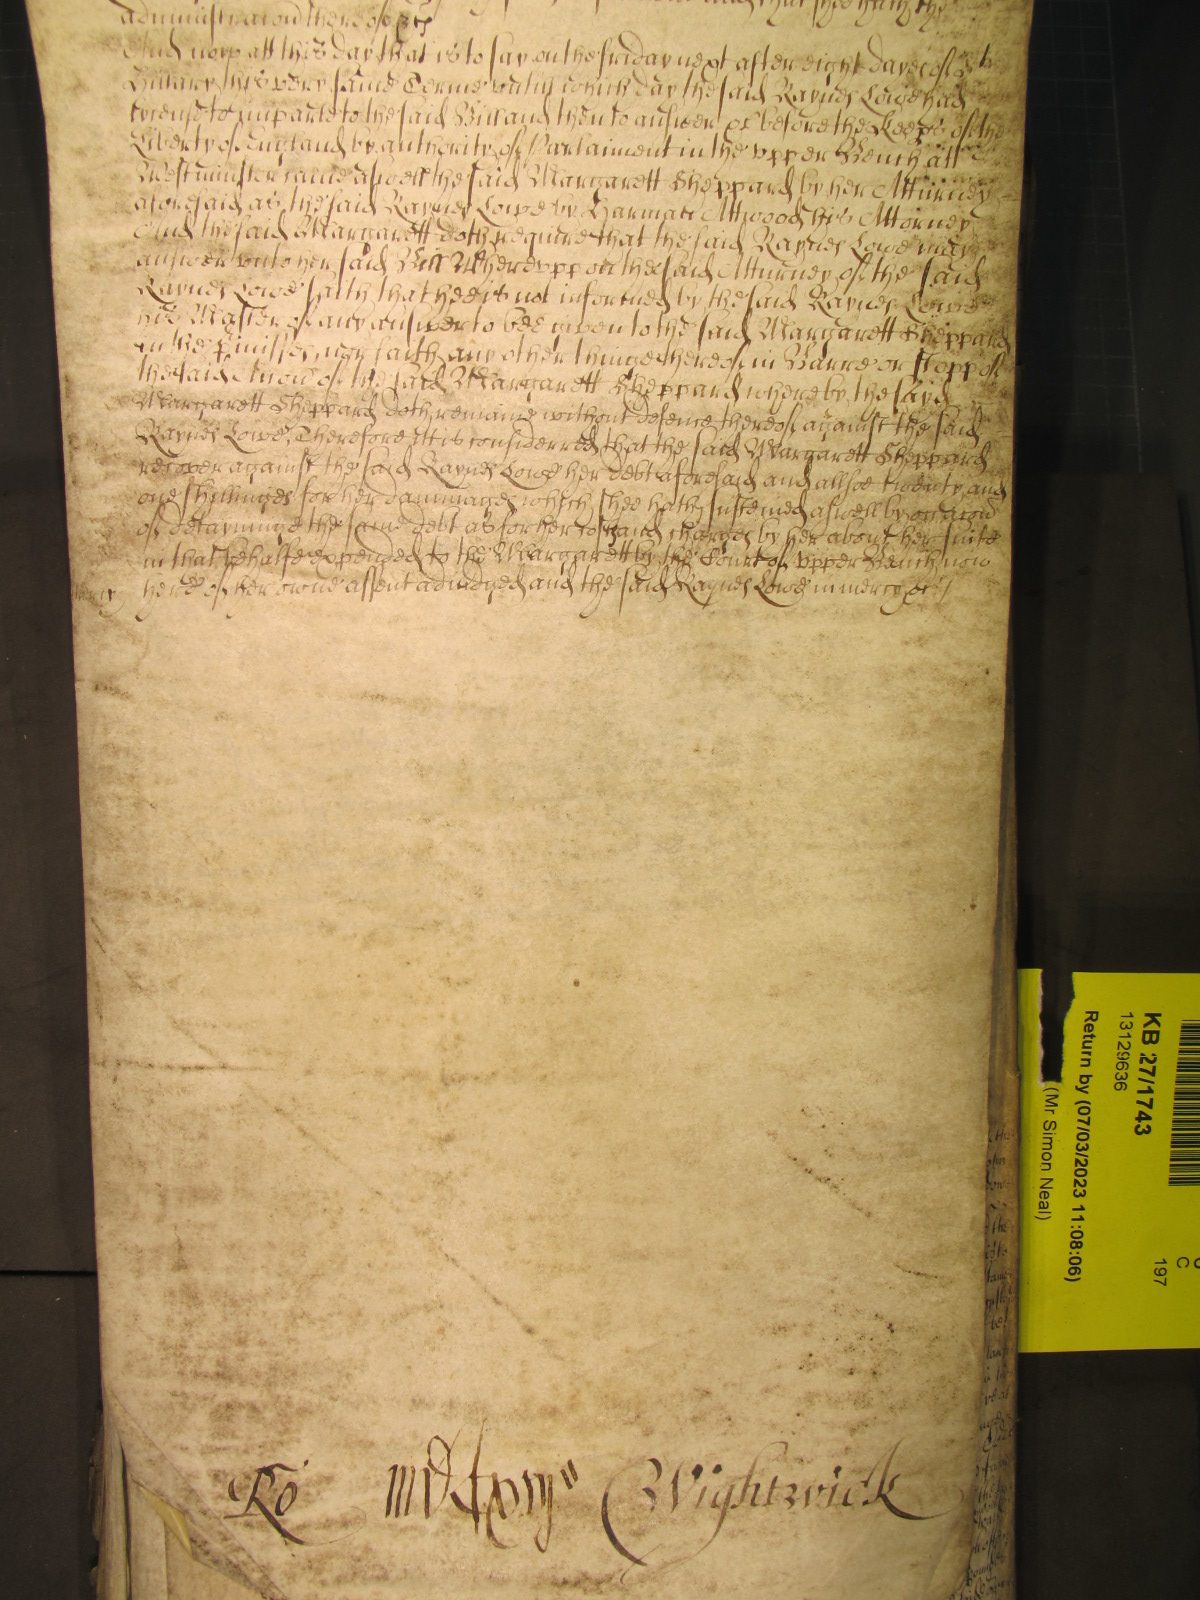 administracon thereof &c
And now att this day that is to say on the friday next after eight dayes of St
Hillary this very same Terme untill which day the said Raynes Lowe had
lycense to imparle to the said Bill and then to answer &c before the Keeps of the
Liberty of England by authority of Parlaiment in the upper Bench att
Westminster came aswell the said Margarett Sheppard by her Atturney
aforesaid as the said Raynes Lowe by Harman Attwood his Attorney
And the said Margarett doth require that the said Raynes Lowe may
answer unto her said Bill Whereuppon the said Atturney of the said
Raynes Lowe saith that hee is not informed by the said Raynes Lowe
his Master of any answer to bee given to the said Margarett Sheppard
in the pmisses nor saith any other thinge thereof in Barre or stoppe of
the said Accon of the said Margarett Sheppard whereby the sayd
Margarett Sheppard doth remaine without defence thereof against the said
Raynes Lowe Therefore itt is considerred that the said Margarett Sheppard
recover against the said Raynes Lowe her debt aforesaid and allsoe twenty and
one shillinges for her dammages which shee hath susteined aswell by occacon
of detayninge the same debt as for her costs and charges by her about her suite
in that behalfe expended to the Margarett by the Court of upper Bench now
here of her owne assent adiudged and the said Raynes Lowe in mercy &c
mercy
Ro Wightwick
KB 27/1743
13129636
Return by (07/03/2023 11:08:06)
(Mr Simon Neal)
C
197